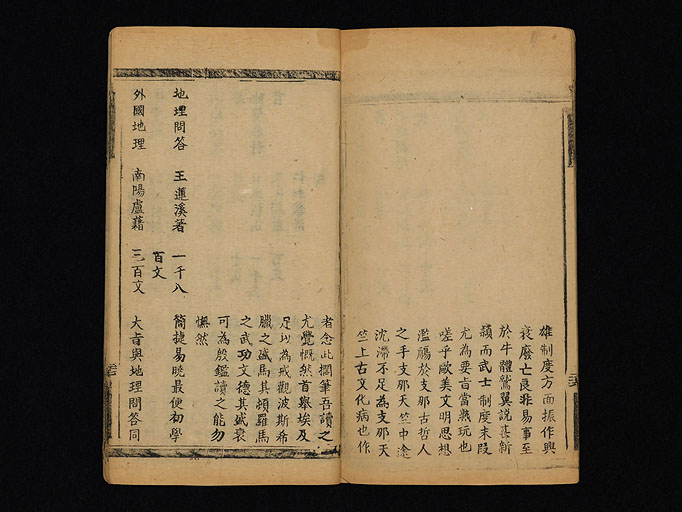 雄制度方面振作興
衰廢亡良非易事至
於牛體鷲翼說甚新
穎而武士制度末段
尤為要肯當熟玩也
嗟乎歐美文明思想
濫觴於支那古哲人
之手支那天竺中途
沈滯不足為支那天
竺上古文化病也作
者念此擱筆吾讀之
尤覺慨然首舉埃及
足以為戒觀波斯希
臘之滅馬其頓羅馬
之武功文德其盛衰
可為殷鑑讀之能勿
憮然
地理問答 王蓮溪著 一千八百文 簡捷易曉最便初學
外國地理 南陽盧藉 三百文 大旨與地理問答同